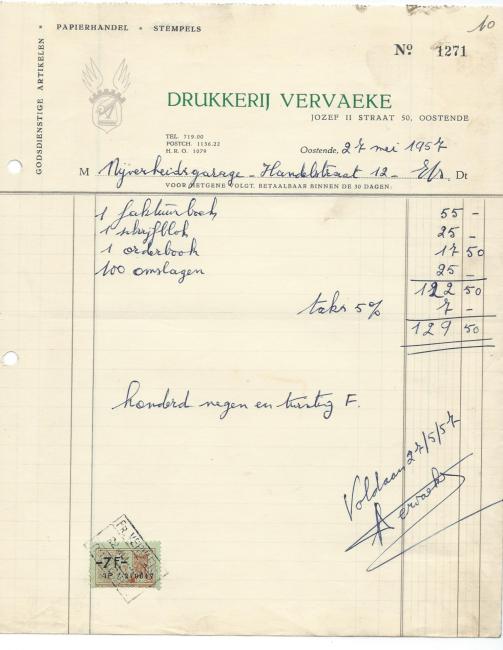 PAPIERHANDEL * STEMPELS
GODSDIENSTIGE ARTIKELEN *
10
Nº 1271
DRUKKERIJ VERVAEKE
JOZEF II STRAAT 50, OOSTENDE
TEL. 719.00
POSTCH. 1136.22
H. R. O. 1079
Oostende, 27 mei 1957
M Nijverheidsgarage - Handelstraat 12 - Dt
VOOR HETGENE VOLGT, BETAALBAAR BINNEN DE 30 DAGEN:
1 faktuurboek 55 -
1 schrijfblok 25 -
1 orderboek 17 50
100 omslagen 25 -
122 50
taks 5% 7 -
129 50
honderd negen en twintig F.
Voldaan 27/5/57
Vervaeke
-7F-